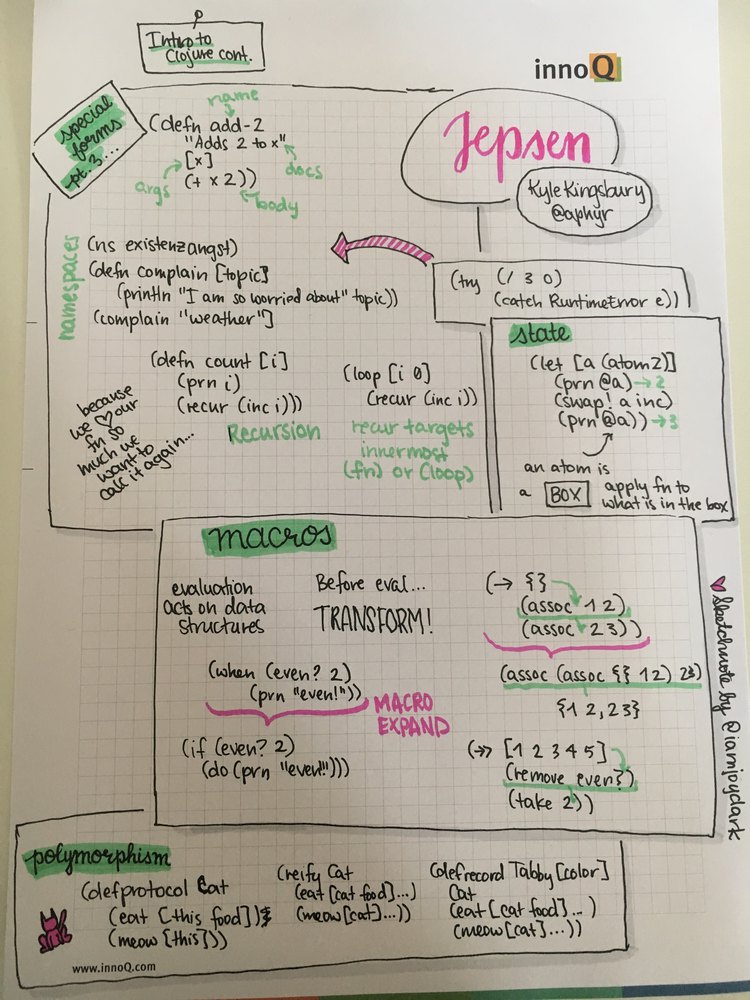 Intro to
Clojure cont.
innoQ
Jepsen
Kyle Kingsbury
@aphyr
special
forms
pt. 3...
name
(defn add-2
"Adds 2 to x"
[x]
(+ x 2))
args
docs
body
namespaces
(ns existenzangst)
(defn complain [topic]
(println "I am so worried about" topic))
(complain "weather"]
(try (/ 3 0)
(catch RuntimeError e))
(defn count [i]
(prn i)
(recur (inc i)))
Recursion
because
we ♡ our
fn so
much we
want to
call it again...
(loop [i 0]
(recur (inc i))
recur targets
innermost
(fn) or (loop)
state
(let [a (atom 2)]
(prn @a) → 2
(swap! a inc)
(prn @a)) → 3
an atom is
a BOX apply fn to
what is in the box
macros
evaluation
acts on data
structures
Before eval...
TRANSFORM!
(when (even? 2)
(prn "even!"))
MACRO
EXPAND
(if (even? 2)
(do (prn "even!")))
(→ {}
(assoc 1 2)
(assoc 2 3))
(assoc (assoc {} 1 2) 2 3)
{1 2, 2 3}
(↠ [1 2 3 4 5]
(remove even?)
(take 2))
♥ Sketchnote by @iamjoydark
polymorphism
(defprotocol Cat
(eat [this food])
(meow [this]))
(reify Cat
(eat [cat food]...)
(meow [cat]...))
(defrecord Tabby [color]
Cat
(eat [cat food]...)
(meow [cat]...))
www.innoQ.com